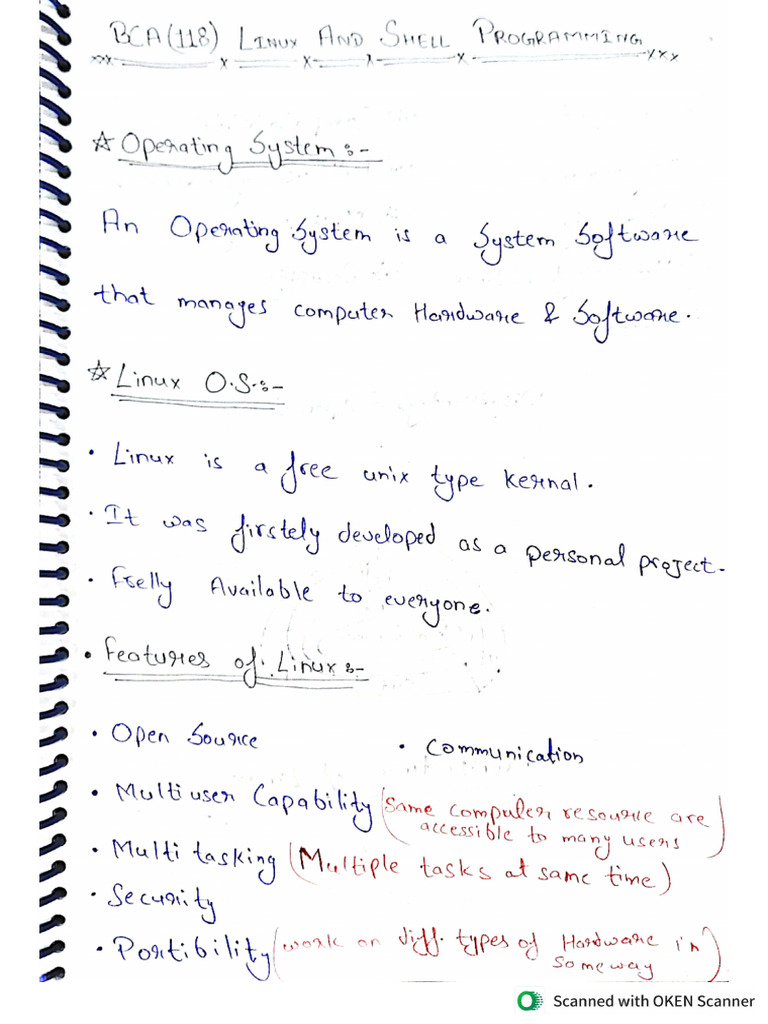 BCA(118) LINUX AND SHELL PROGRAMMING
xxx x x x x xxx
☆ Operating System :-
An Operating System is a System Software
that manages computer Hardware & Software.
☆ Linux O.S. :-
• Linux is a free unix type kernal.
• It was firstely developed as a personal project.
• Frelly Available to everyone.
• Features of Linux :-
• Open Source
• Communication
• Multiuser Capability (Same computer resource are
accessible to many users)
• Multi tasking (Multiple tasks at same time)
• Security
• Portibility (work on diff. types of Hardware in
Some way)
Scanned with OKEN Scanner